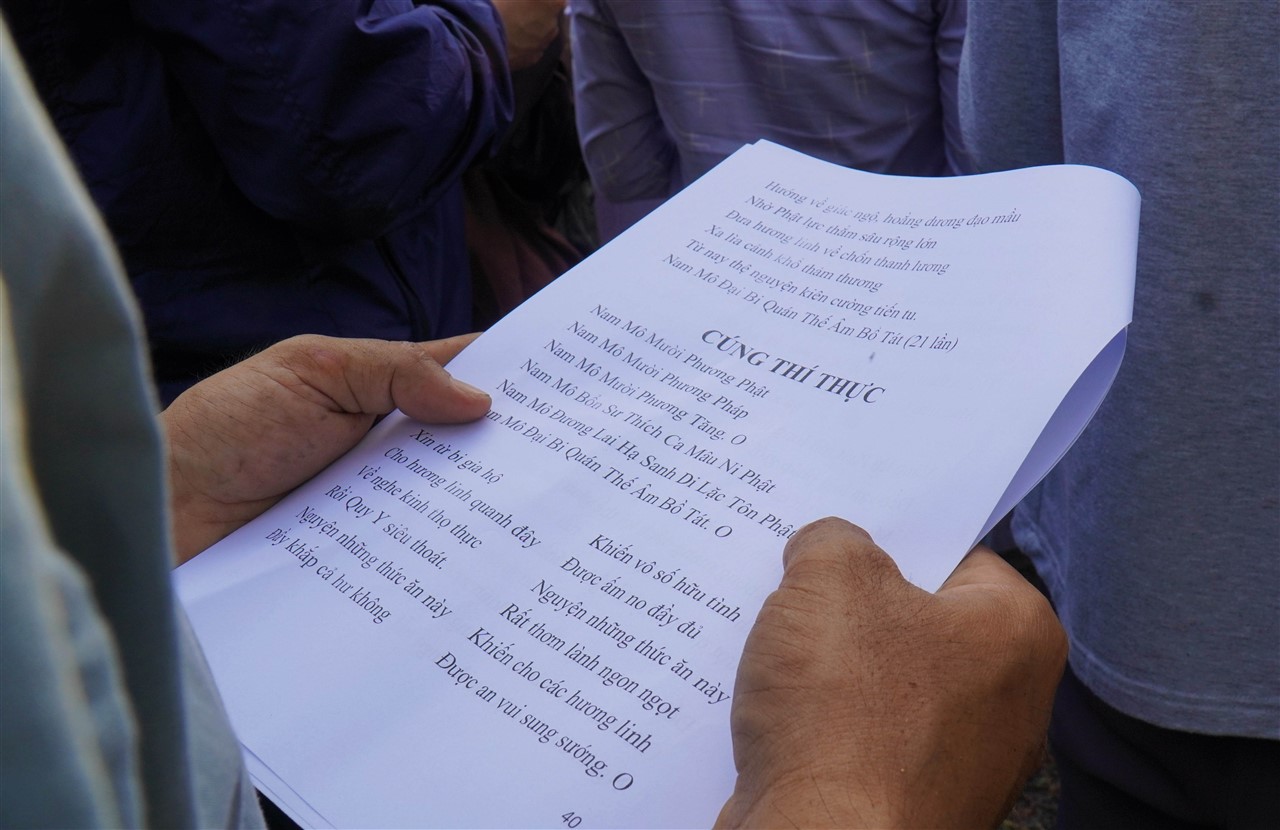 Hướng về giác ngộ, hoằng dương đạo mầu
Nhờ Phật lực thâm sâu rộng lớn
Đưa hương linh về chốn thanh lương
Xa lìa cảnh khổ thảm thương
Từ nay thệ nguyện kiên cường tiến tu.
Nam Mô Đại Bi Quán Thế Âm Bồ Tát (21 lần)
CÚNG THÍ THỰC
Nam Mô Mười Phương Phật
Nam Mô Mười Phương Pháp
Nam Mô Mười Phương Tăng. O
Nam Mô Bổn Sư Thích Ca Mâu Ni Phật
Nam Mô Đương Lai Hạ Sanh Di Lặc Tôn Phật
Mô Đại Bi Quán Thế Âm Bồ Tát. O
Xin từ bi gia hộ
Cho hương linh quanh đây
Về nghe kinh thọ thực
Rồi Quy Y siêu thoát.
Nguyện những thức ăn này
Đầy khắp cả hư không
Khiến vô số hữu tình
Được ấm no đầy đủ
Nguyện những thức ăn này
Rất thơm lành ngon ngọt
Khiến cho các hương linh
Được an vui sung sướng. O
40